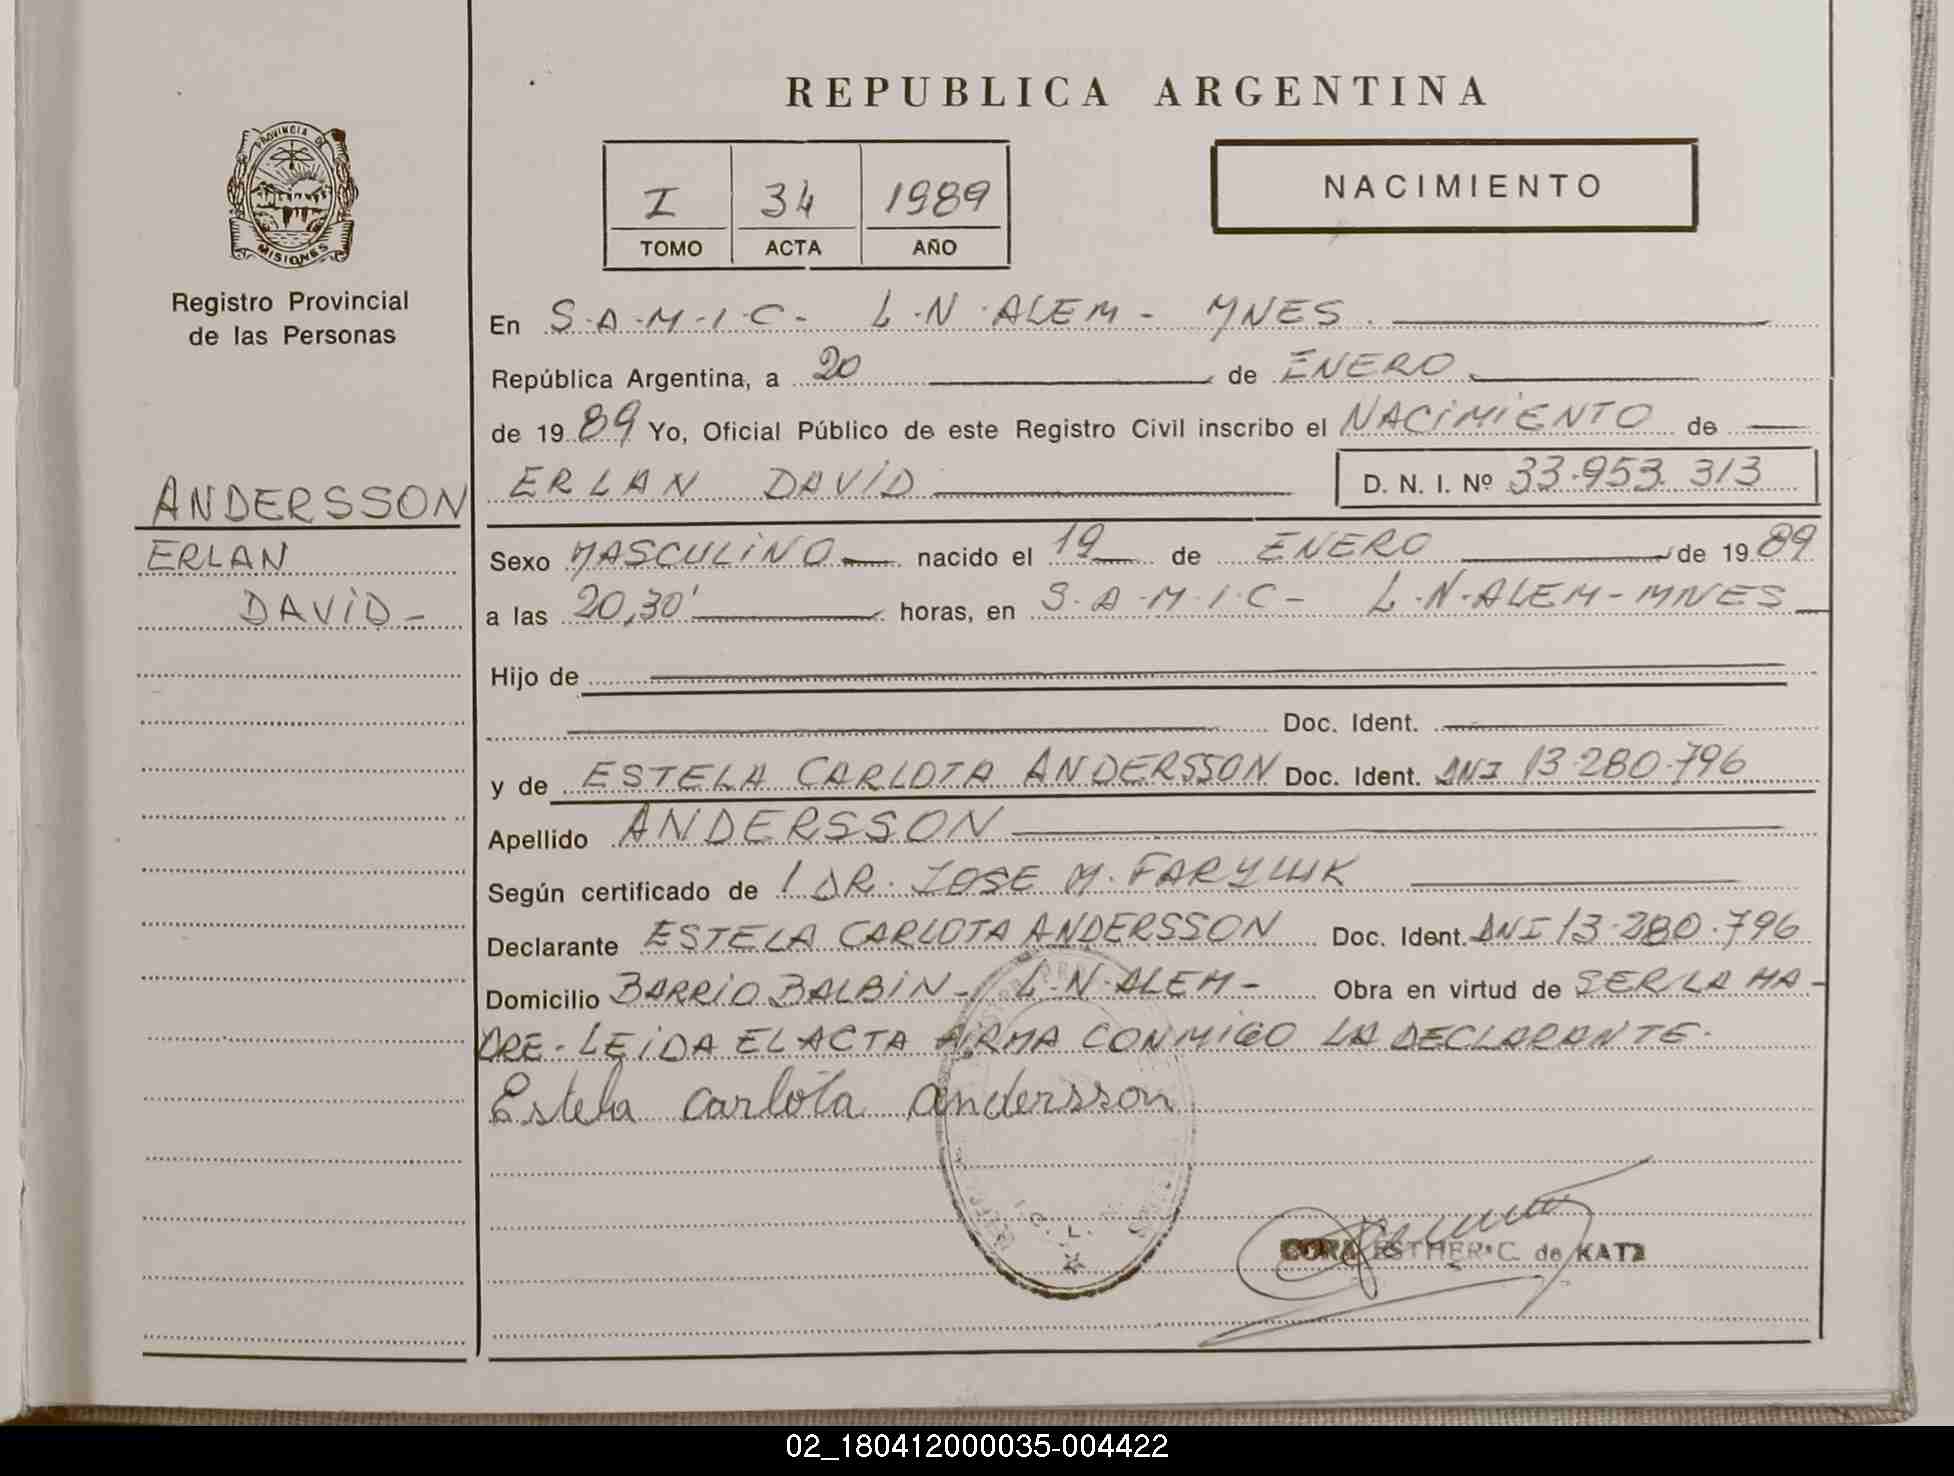 REPUBLICA ARGENTINA
PROVINCIA DE
MISIONES
Registro Provincial
de las Personas
I 34 1989
TOMO ACTA AÑO
NACIMIENTO
En S.A.M.I.C- L.N.ALEM- MNES.
República Argentina, a 20 de ENERO
de 1989 Yo, Oficial Público de este Registro Civil inscribo el NACIMIENTO de
ERLAN DAVID D. N. I. Nº 33.953.313
ANDERSSON
ERLAN
DAVID-
Sexo MASCULINO nacido el 19 de ENERO de 1989
a las 20,30' horas, en S.A.M.I.C- L.N.ALEM-MNES
Hijo de
Doc. Ident.
y de ESTELA CARLOTA ANDERSSON Doc. Ident. DNI 13.280.796
Apellido ANDERSSON
Según certificado de DR. JOSE M. FARYLUK
Declarante ESTELA CARLOTA ANDERSSON Doc. Ident. DNI 13.280.796
Domicilio BARRIO BALBIN- L.N.ALEM- Obra en virtud de SER LA MA-
DRE-LEIDA EL ACTA FIRMA CONMIGO LA DECLARANTE.
Estela Carlota Andersson
CORA ESTHER C. de KATZ
02_180412000035-004422